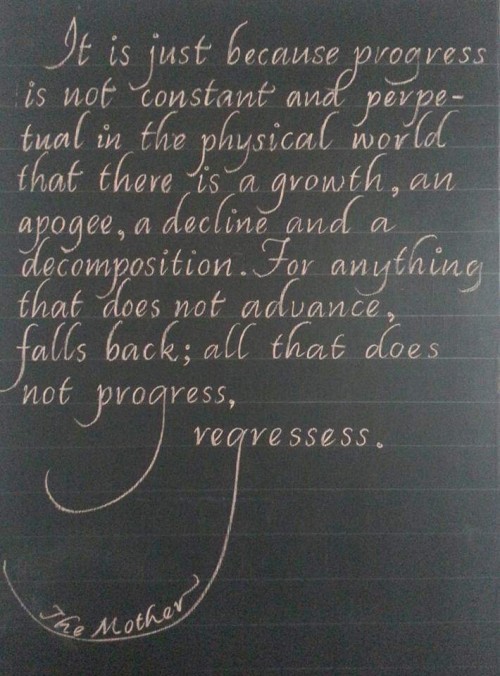 It is just because progress
is not constant and perpe-
tual in the physical world
that there is a growth, an
apogee, a decline and a
decomposition. For anything
that does not advance,
falls back; all that does
not progress,
regressess.
The Mother